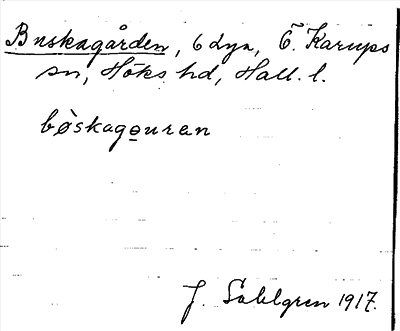 Buskagården, 6 Lyn, Ö. Karups
sn, Höks hd, Hall. l.
bøskagouran
J. Sahlgren 1917.